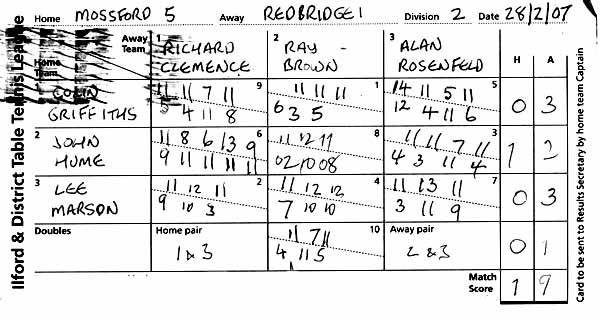 Ilford & District Table Tennis League
Home MOSSFORD 5 Away REDBRIDGE 1 Division 2 Date 28/2/07
Away Team 1 RICHARD CLEMENCE 2 RAY BROWN 3 ALAN ROSENFELD H A
Home Team
COLIN GRIFFITHS 9 1 5
11 11 7 11 11 11 11 14 11 5 11 0 3
4 11 8 6 3 5 12 4 11 6
2 JOHN HUME 6 8 3
11 8 6 13 9 11 12 11 11 11 7 11 1 2
9 11 11 11 11 02 10 08 4 3 11 4
3 LEE MARSON 2 4 7
11 12 11 11 12 12 11 13 11 0 3
9 10 3 7 10 10 3 11 9
Doubles Home pair 10 Away pair
1 & 3 11 7 11 2 & 3 0 1
4 11 5
Match Score 1 9
Card to be sent to Results Secretary by home team Captain